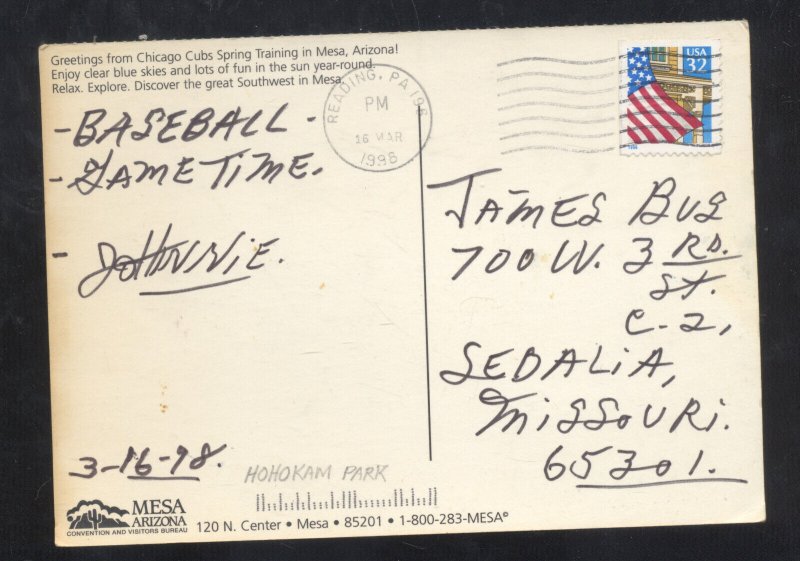 Greetings from Chicago Cubs Spring Training in Mesa, Arizona!
Enjoy clear blue skies and lots of fun in the sun year-round.
Relax. Explore. Discover the great Southwest in Mesa.
READING, PA 196
PM
16 MAR
1998
USA
32
- BASEBALL -
- GAME TIME.
- JOHNNIE.
JAMES BUS
700 W. 3 RD.
ST.
C-2,
SEDALIA,
MISSOURI.
65301.
3-16-98.
HOHOKAM PARK
MESA
ARIZONA
CONVENTION AND VISITORS BUREAU
120 N. Center • Mesa • 85201 • 1-800-283-MESA©